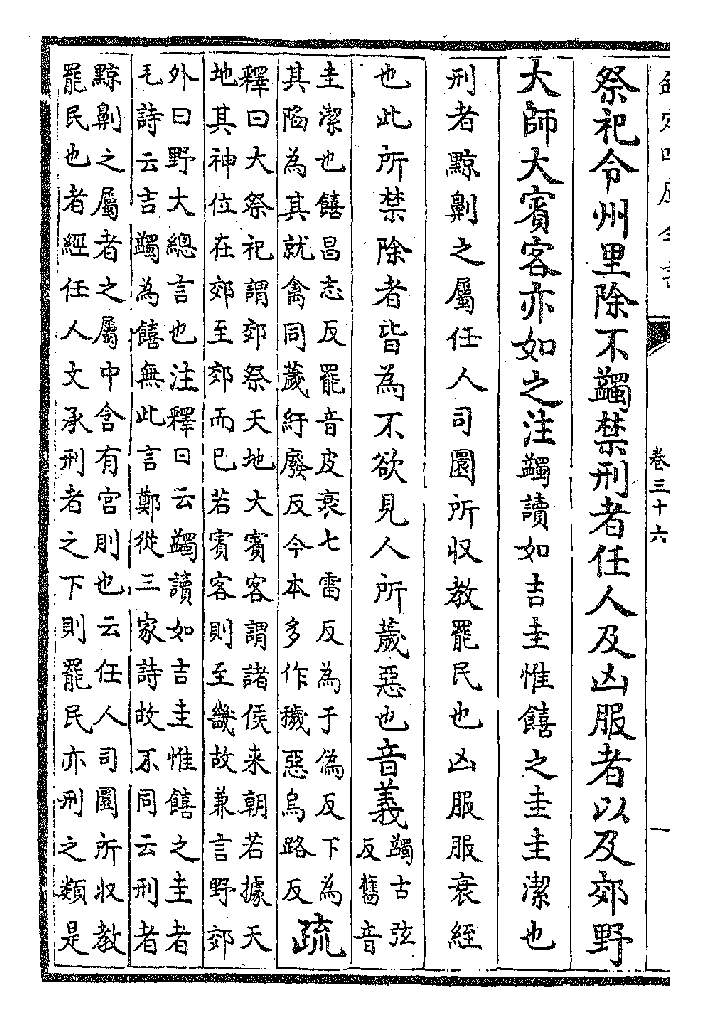 卷三十六
一
祭祀令州里除不蠲禁刑者任人及凶服者以及郊野
大師大賓客亦如之注蠲讀如吉圭惟饎之圭圭潔也
刑者黥劓之屬任人司圜所収教罷民也凶服服衰絰
也此所禁除者皆為不欲見人所薉惡也音義蠲古弦
反舊音
圭潔也饎昌志反罷音皮衰七雷反為于偽反下為
其陷為其就禽同薉紆廢反今本多作穢惡烏路反疏
釋曰大祭祀謂郊祭天地大賓客謂諸侯来朝若據天
地其神位在郊至郊而已若賓客則至畿故兼言野郊
外曰野大總言也注釋曰云蠲讀如吉圭惟饎之圭者
毛詩云吉蠲為饎無此言鄭從三家詩故不同云刑者
黥劓之屬者之屬中含有宫刖也云任人司圜所収教
罷民也者經任人文承刑者之下則罷民亦刑之類是